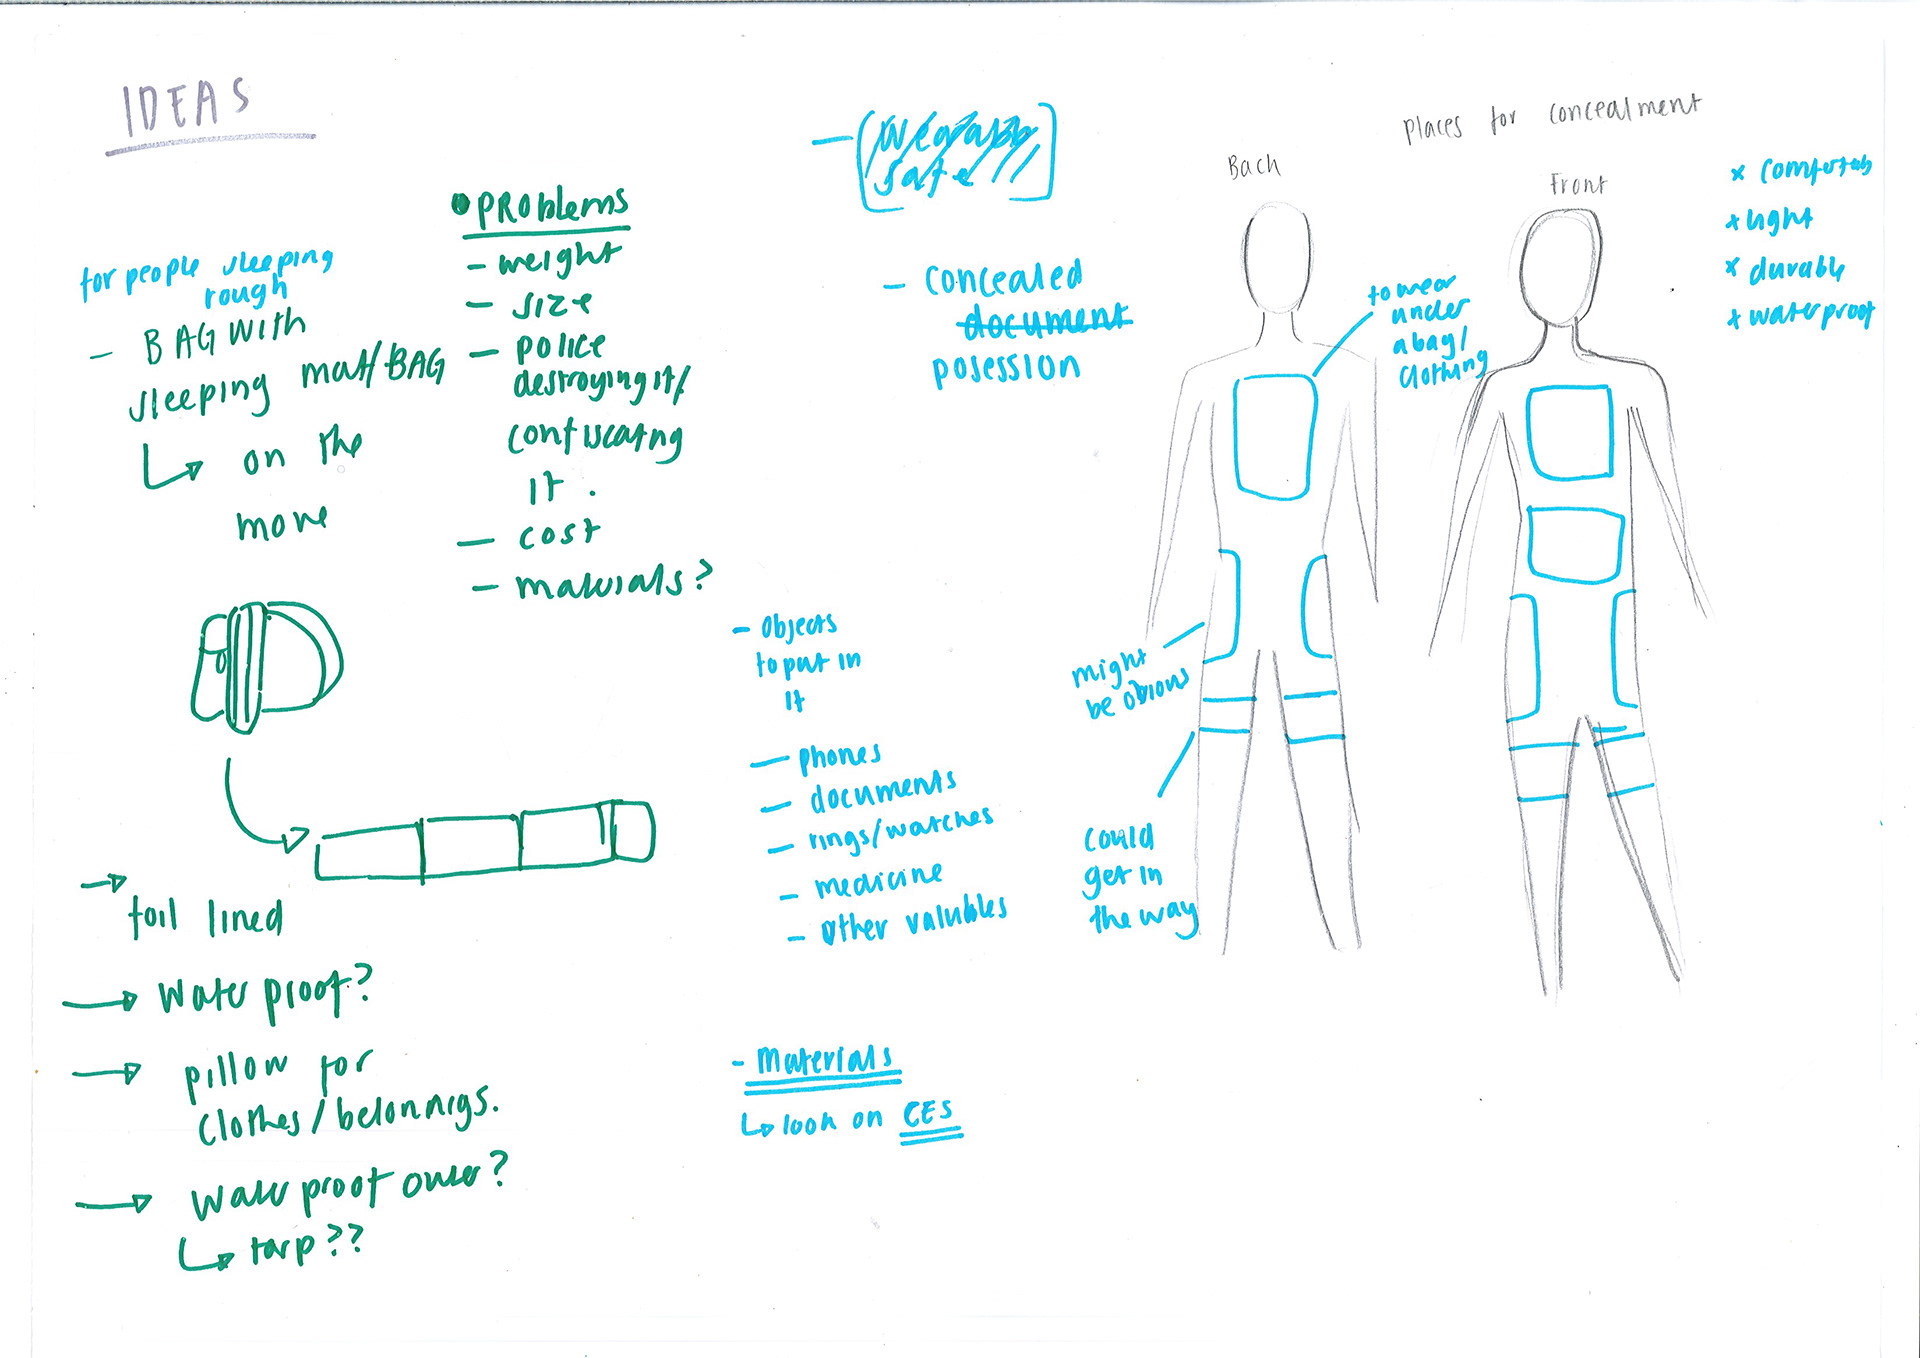 IDEAS
for people sleeping
rough
- BAG with
sleeping matt/BAG
on the
move
foil lined
water proof?
pillow for
clothes/belonnigs.
water proof outer?
tarp??
• PROblems
- weight
- size
- police
destroying it/
confiscating
it.
- cost
- materials?
- (wearable
safe)
- concealed
document
posession
- objects
to put in
it
- phones
- documents
- rings/watches
- medicine
- other valubles
- Materials
look on CES
Places for concealment
Back
Front
to wear
under
a bag/
clothing
might
be obvious
could
get in
the way
x comfortab
x light
x durable
x waterproof